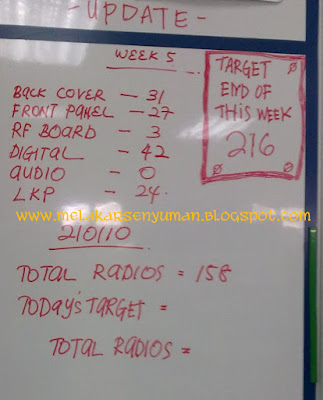 - UPDATE -
WEEK 5
BACK COVER - 31
FRONT PANEL - 27
RF BOARD - 3
DIGITAL - 42
AUDIO - 0
LKP - 24
TARGET
END OF
THIS WEEK
216
www.melakarsenyuman.blogspot.com
210110
TOTAL RADIOS = 158
TODAY'S TARGET =
TOTAL RADIOS =